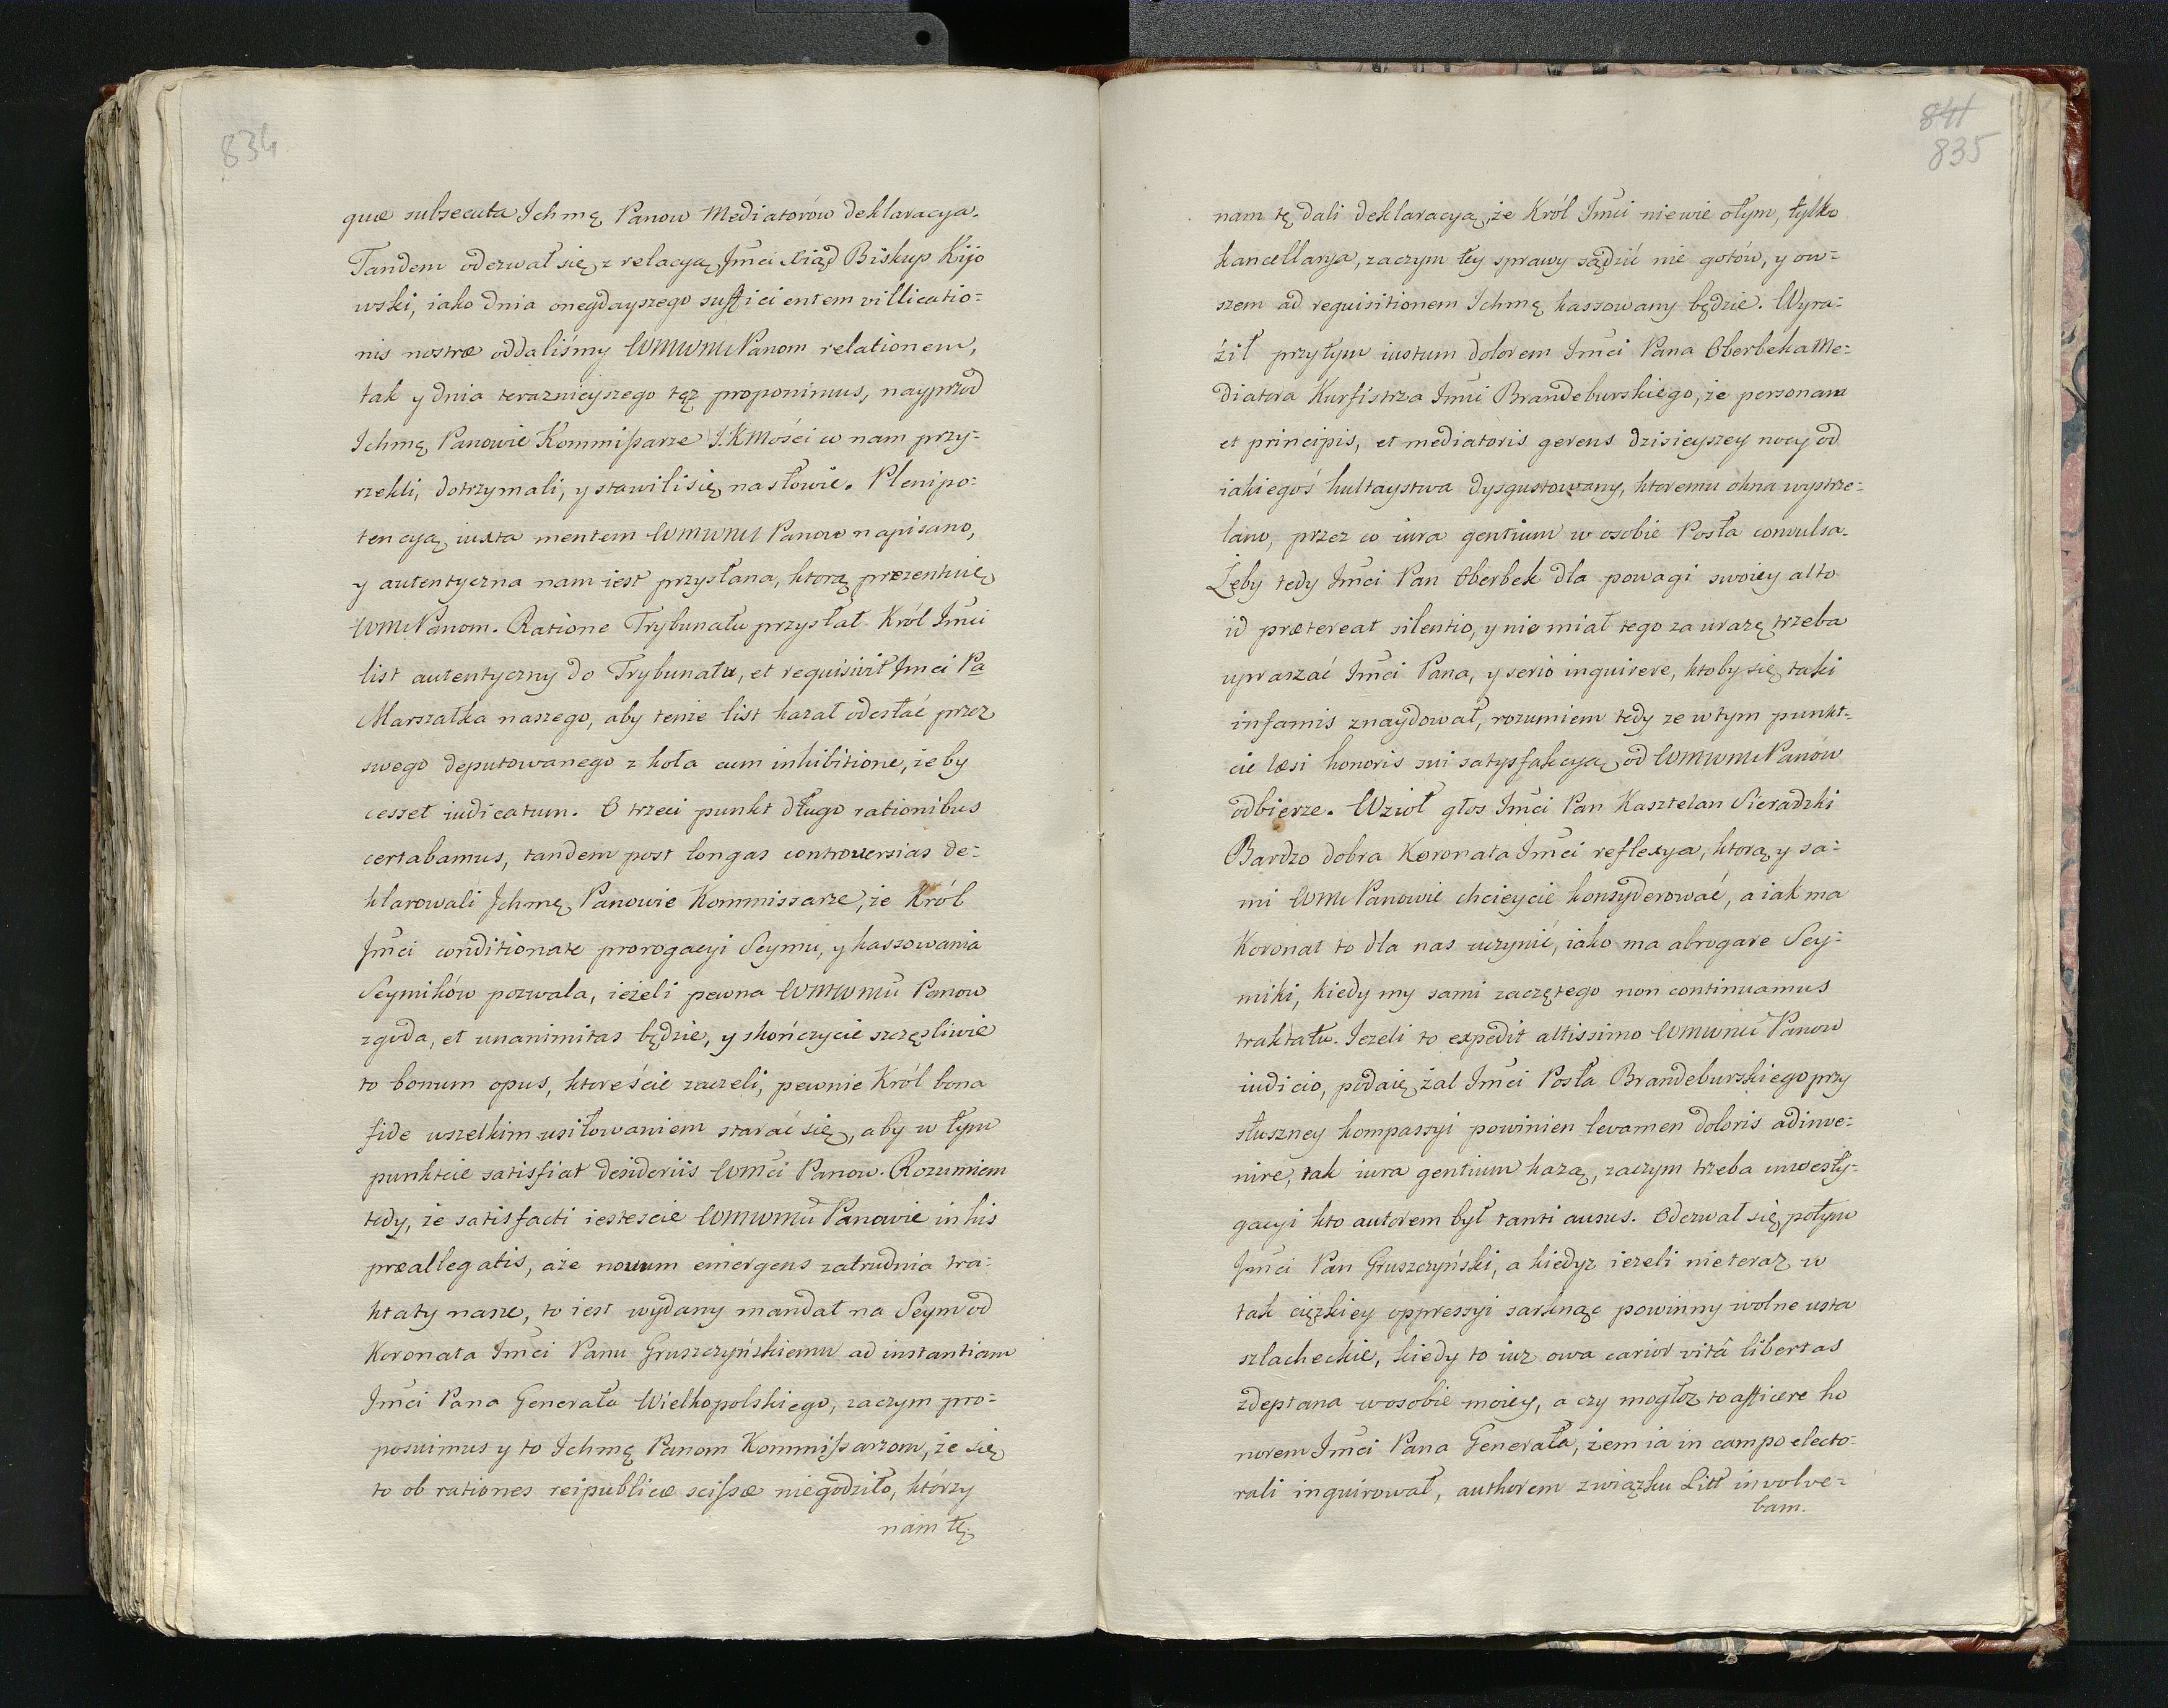 834
quæ subsecuta Ichmę Panow Mediatorów deklaracya.
Tandem odezwał się z relacyą Jmci Xiąd Biskup Kijo
wski, iako dnia onegdayszego sufficientem villicatio=
nis nostræ oddaliśmy WMWM Panom relationem,
tak y dnia teraznieyszego tęz proponimus, nayprzod
Ichmę Panowie Kommißarze J.KMości co nam przy=
rzekli, dotrzymali, y stawili się na słowie. Plenipo=
tencyą iuxta mentem WMWM Panow napisano,
y autentyczna nam iest przysłana, ktorą prezentuię
WM Panom. Ratione Trybunału przysłał Król Jmci
list autentyczny do Trybunału, et requisivit Jmci Pa
Marszałka naszego, aby tenże list kazał odesłać przez
swego deputowanego z koła cum inhibitione, żeby
cesset iudicatum. O trzeci punkt długo rationibus
certabamus, tandem post longas controversias de=
klarowali Jchmę Panowie Kommissarze, że Król
Jmci conditionate prorogacyi Seymu, y kassowania
Seymików pozwala, ieżeli pewna WMWM Panow
zgoda, et unanimitas będzie, y skończycie szczęśliwie
to bonum opus, ktoreście zaczeli, pewnie Król bona
fide wszelkim usiłowaniem starać się, aby w tym
punkcie satisfiat desideriis WMci Panow. Rozumiem
tedy, że satisfacti iestescie WMWM Panowie in his
præallegatis, aże novum emergens zatrudnia tra=
ktaty nasze, to iest wydany mandat na Seym od
Koronata Jmci Panu Gruszczyńskiemu ad instantiam
Jmci Pana Generała Wielkopolskiego, zaczym pro=
posuimus y to Ichmę Panom Kommißarzom, że się
to ob rationes reipublicæ scißæ niegodziło, którzy
nam tę
841
835
nam tę dali deklaracyą, że Król Jmci niewie otym, tylko
kancellarya, zaczym tey sprawy sądzić nie gotów, y ow=
szem ad requisitionem Ichmę kassowany będzie. Wyra=
źił przytym iustum dolorem Jmci Pana Oberbeka Me=
diatora Kurfistrza Jmci Brandeburskiego, że personam
et principis, et mediatoris gerens dzisieyszey nocy od
iakiegoś hultaystwa dysgustowany, ktoremu okna wystrze=
lano, przez co iura gentium w osobie Posła convulsa.
Żęby tedy Jmci Pan Oberbek dla powagi swoiey alto
id prætereat silentio, y nie miał tego za urazę trzeba
upraszać Jmci Pana, y serio inquirere, ktoby się taki
infamis znaydował, rozumiem tedy ze w tym punkt=
cie læsi honoris sui satysfakcyą od WMWM Panów
odbierze. Wzioł głos Jmci Pan Kasztelan Sieradzki
Bardzo dobra Koronata Jmci reflexya, ktorą y sa=
mi WM Panowie chcieycie konsyderować, a iak ma
Koronat to dla nas uczynić, iako ma abrogare Sey=
miki, kiedy my sami zaczętego non continuamus
traktatu. Iezeli to expedit altissimo WMWM Panow
iudicio, podaię żal Jmci Posła Brandeburskiego przy
słuszney kompassyi powinien levamen doloris adinve=
nire, tak iura gentium każą, zaczym trzeba inwesty=
gacyi kto autorem był tanti ausus. Odezwał się potym
Jmci Pan Gruszczyński, a kiedyż ieżeli nieteraz w
tak ciężkiey oppressyi sarknąc powinny wolne usta
szlacheckie, kiedy to iuz owa carior vitâ libertas
zdeptana wosobie moiey, a czy mogłoz to afficere ho
norem Jmci Pana Generała, żem ia in campo electo=
rali inquirował, authorem związku Litt involve=
bam.